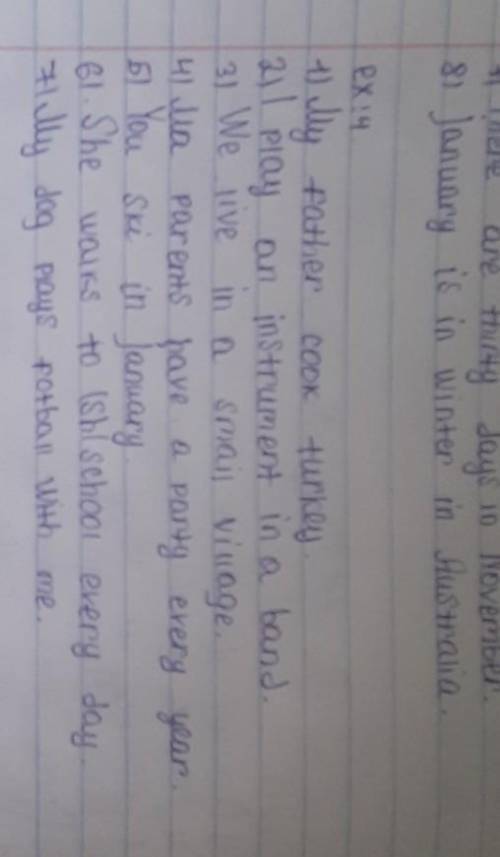 7) There are thirty days in November.
8) January is in winter in Australia.
ex:4
1) My father cook turkey.
2) I play an instrument in a band.
3) We live in a small village.
4) Ma parents have a party every year.
5) You ski in january.
6). She walks to (sh(school every day.
7) My dog plays fotball with me.